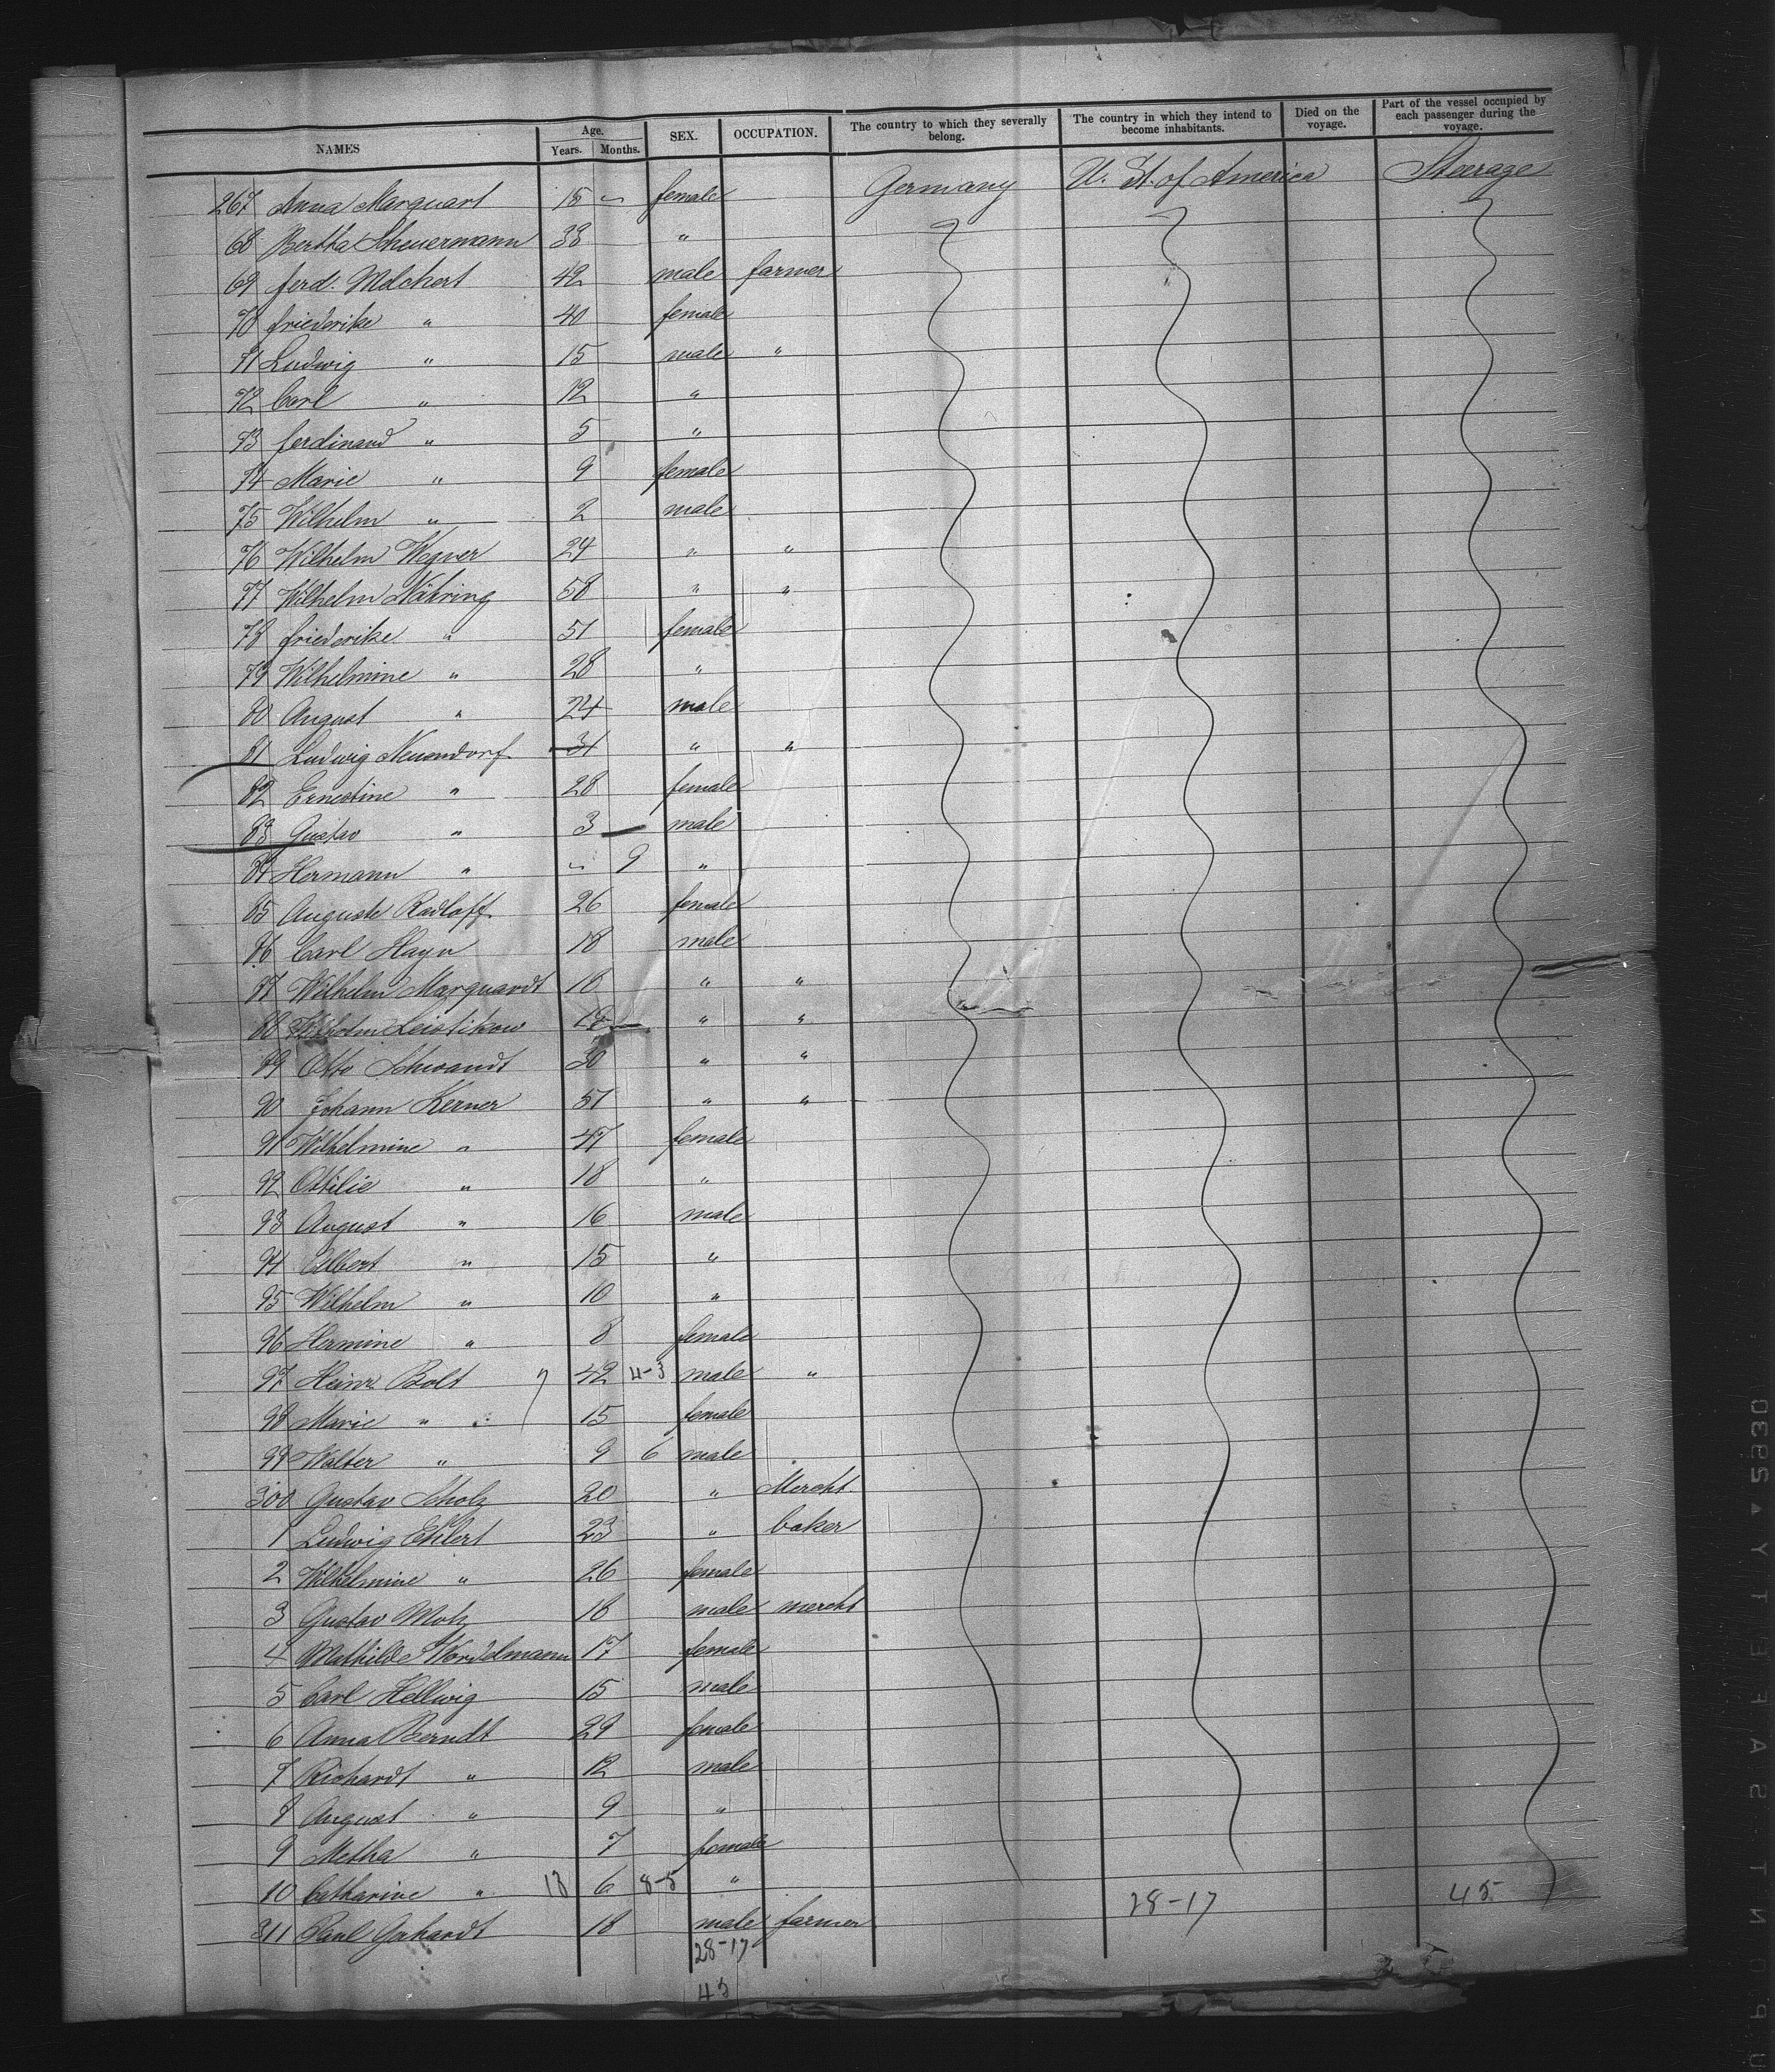 NAMES Age. Years. Months. SEX. OCCUPATION. The country to which they severally belong. The country in which they intend to become inhabitants. Died on the voyage. Part of the vessel occupied by each passenger during the voyage.
267 Anna Marquart 18 " female Germany U. St. of America Steerage
68 Bertha Scheuermann 38 "
69 ferd. Melchert 42 male farmer
70 friederike " 40 female
71 Ludwig " 15 male "
72 Carl " 12 "
73 ferdinand " 5 "
74 Marie " 9 female
75 Wilhelm " 2 male
76 Wilhelm Wegner 24 " "
77 Wilhelm Nähring 58 " "
78 friederike " 51 female
79 Wilhelmine " 28 "
80 August " 24 male
81 Ludwig Neuendorf 31 " "
82 Ernestine " 28 female
83 Gustav " 3 male
84 Hermann " " 9 "
85 Auguste Radloff 26 female
86 Carl Hayn 18 male
87 Wilhelm Marquardt 18 " "
88 Wilhelm Leistikow " "
89 Otto Schwandt 30 " "
90 Johann Kerner 51 " "
91 Wilhelmine " 47 female
92 Ottilie " 18 "
93 August " 16 male
94 Albert " 15 "
95 Wilhelm " 10 "
96 Hermine " 8 female
97 Heinr. Bolt 7 42 4-3 male "
98 Marie " 15 female
99 Walter " 9 6 male
300 Gustav Scholz 20 " Mercht.
1 Ludwig Ehlert 23 " baker
2 Wilhelmine " 26 female
3 Gustav Motz 18 male mercht
4 Mathilde 17 female
5 Carl Hellwig 15 male
6 Anna Berndt 29 female
7 Richardt " 12 male
8 August " 9 "
9 Metha " 7 female
10 Catharine " 13 6 8-5 " 28-17 45
311 Paul Gerhardt 18 male farmer
28-17
45